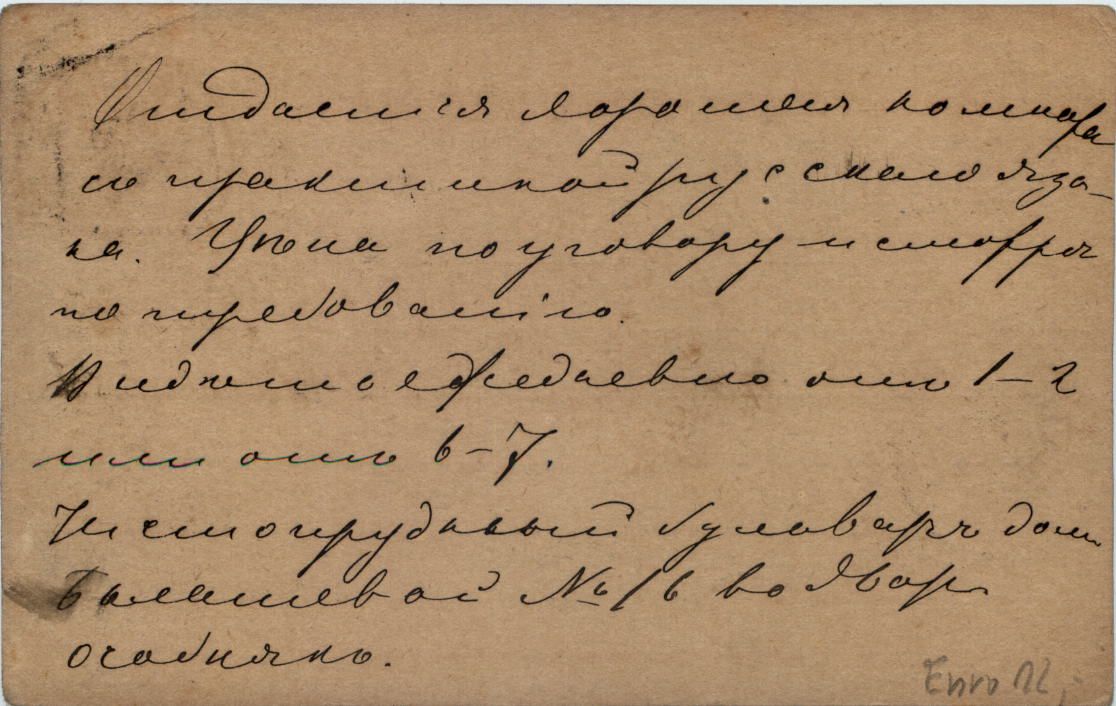 Отдается хорошая комната
съ практикой русскаго язы-
ка. Цѣна по уговору и смотря
по требованію.
Видѣть ежедневно отъ 1–2
или отъ 6–7.
Чистопрудный бульваръ домъ
Балашевой № 16 во дворѣ
особнякъ.
Euro 12,-